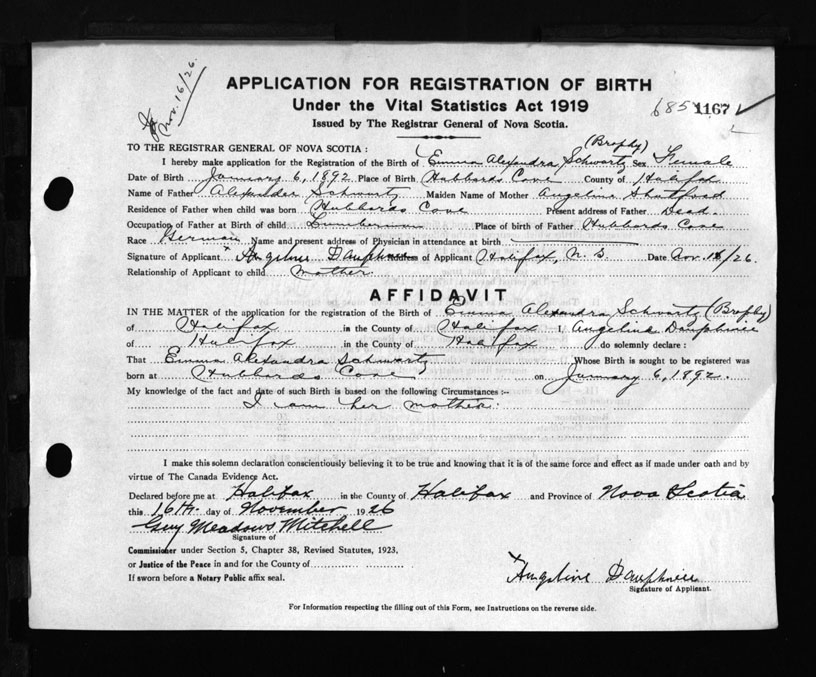 Nov. 16/26.
APPLICATION FOR REGISTRATION OF BIRTH
Under the Vital Statistics Act 1919
685 1167
Issued by The Registrar General of Nova Scotia.
TO THE REGISTRAR GENERAL OF NOVA SCOTIA :
(Brophy)
I hereby make application for the Registration of the Birth of Emma Alexandra Schwartz Sex Female
Date of Birth January 6, 1892 Place of Birth Hubbards Cove County of Halifax
Name of Father Alexander Schwartz Maiden Name of Mother Angeline Shatford
Residence of Father when child was born Hubbards Cove Present address of Father Dead.
Occupation of Father at Birth of child Lumberman Place of birth of Father Hubbards Cove
Race German Name and present address of Physician in attendance at birth
Signature of Applicant x Angeline Dauphinee Address of Applicant Halifax, N. S. Date Nov. 16/26.
Relationship of Applicant to child mother.
AFFIDAVIT
IN THE MATTER of the application for the registration of the Birth of Emma Alexandra Schwartz (Brophy)
of Halifax in the County of Halifax I, Angeline Dauphinee
of Halifax in the County of Halifax do solemnly declare :
That Emma Alexandra Schwartz Whose Birth is sought to be registered was
born at Hubbards Cove on January 6, 1892.
My knowledge of the fact and date of such Birth is based on the following Circumstances :-
I am her mother.
I make this solemn declaration conscientiously believing it to be true and knowing that it is of the same force and effect as if made under oath and by
virtue of The Canada Evidence Act.
Declared before me at Halifax in the County of Halifax and Province of Nova Scotia
this 16th day of November 1926
Guy Meadows Mitchell
Signature of
Commissioner under Section 5, Chapter 38, Revised Statutes, 1923,
or Justice of the Peace in and for the County of
If sworn before a Notary Public affix seal.
x Angeline Dauphinee
Signature of Applicant.
For Information respecting the filling out of this Form, see Instructions on the reverse side.